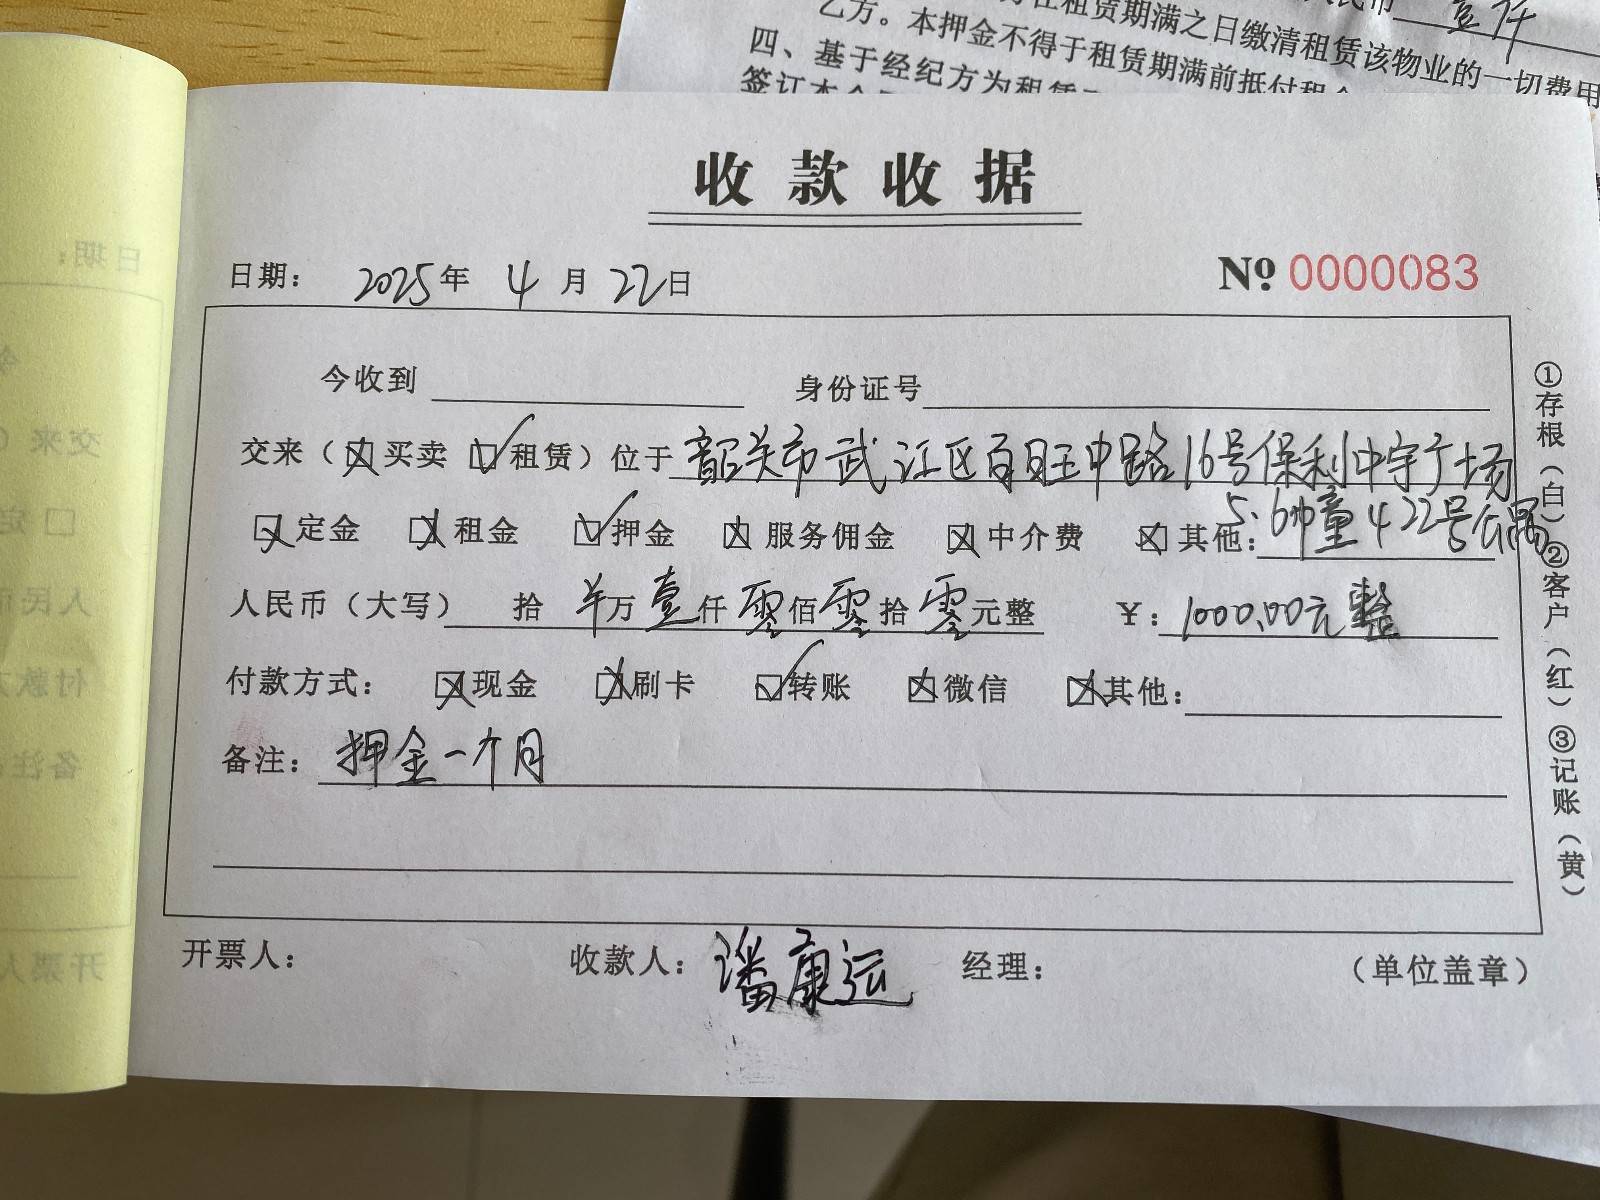 人民币 壹仟
乙方。本押金不得于租赁期满前抵付租金
租赁期满之日缴清租赁该物业的一切费用
四、基于经纪方为租赁
签订本合
收款收据
日期： 2025年 4 月 22日
№ 0000083
今收到 身份证号
交来（☒买卖 ☑租赁）位于 韶关市武江区百旺中路16号保利中宇广场
5、6幢 422号公寓
☒定金 ☒租金 ☑押金 ☒服务佣金 ☒中介费 ☒其他：
人民币（大写） 拾 羊万 壹仟 零佰 零拾 零元整 ￥：1000.00元整
付款方式： ☒现金 ☒刷卡 ☑转账 ☒微信 ☒其他：
备注： 押金一个月
开票人： 收款人：潘康运 经理： （单位盖章）
①存根（白）②客户（红）③记账（黄）
日期：
交来（
□定
人民币
付款方
备注：
开票人